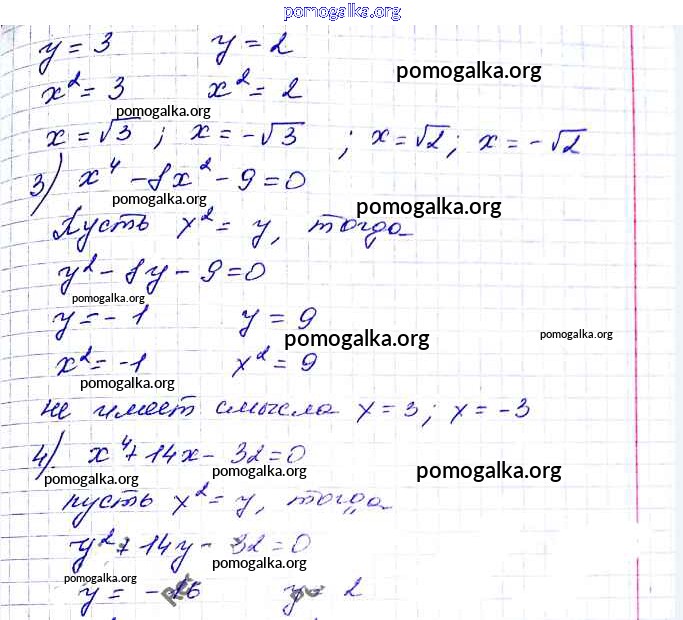 pomogalka.org
y = 3 y = 2
pomogalka.org
x² = 3 x² = 2
pomogalka.org
x = √3 ; x = -√3 ; x = √2 ; x = -√2
3) x⁴ - 8x² - 9 = 0
pomogalka.org
pomogalka.org
Пусть x² = y, тогда
y² - 8y - 9 = 0
pomogalka.org
y = - 1 y = 9
pomogalka.org
pomogalka.org
x² = -1 x² = 9
pomogalka.org
не имеет смысла x = 3; x = -3
4) x⁴ + 14x - 32 = 0
pomogalka.org
pomogalka.org
pomogalka.org
пусть x² = y, тогда
y² + 14y - 32 = 0
pomogalka.org
pomogalka.org
y = - 16 y = 2